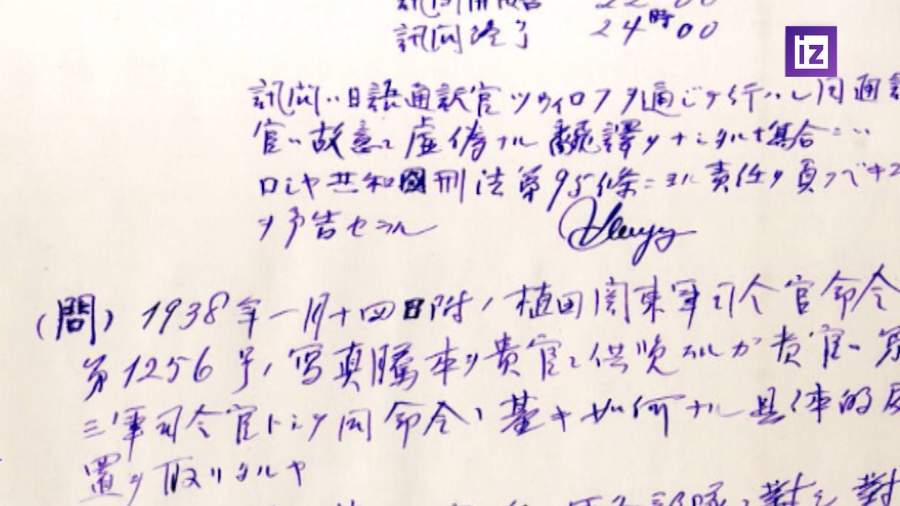 iz
訊問開始 22時00
訊問終了 24時00
訊問ハ日語通訳官ツウィロフヲ通ジテ行ハレ同通訳
官ハ故意ニ虚偽ナル飜譯ヲナシタル場合ニハ
ロシヤ共和国刑法第95條ニヨル責任ヲ負フベキコ
ヲ予告セラル
(問) 1938年一月十四日附ノ植田関東軍司令官命令
第1256号ノ写真謄本ヲ貴官ニ供覧スルガ貴官ハ第
三軍司令官トシテ同命令ニ基キ如何ナル具体的
置ヲ取リタルヤ
部隊ニ對シ對